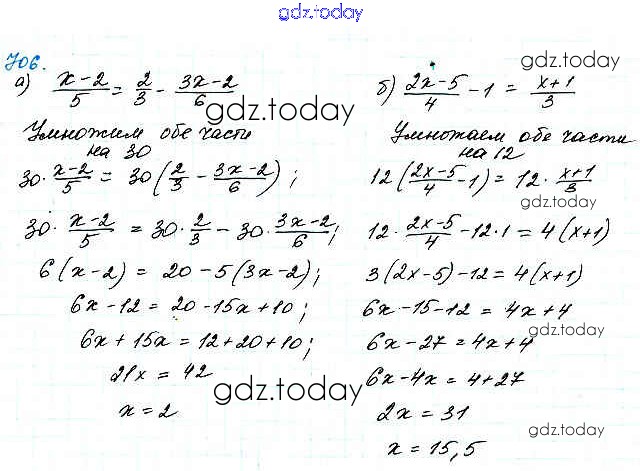 gdz.today
706.
а) (x-2)/5 = 2/3 - (3x-2)/6
Умножим обе части
на 30
30·(x-2)/5 = 30(2/3 - (3x-2)/6);
30·(x-2)/5 = 30·2/3 - 30·(3x-2)/6;
6(x-2) = 20-5(3x-2);
6x-12 = 20-15x+10;
6x+15x = 12+20+10;
21x = 42
x = 2
б) (2x-5)/4 - 1 = (x+1)/3
Умножаем обе части
на 12
12((2x-5)/4 - 1) = 12·(x+1)/3
12·(2x-5)/4 - 12·1 = 4(x+1)
3(2x-5)-12 = 4(x+1)
6x-15-12 = 4x+4
6x-27 = 4x+4
6x-4x = 4+27
2x = 31
x = 15,5
gdz.today
gdz.today
gdz.today
gdz.today
gdz.today
gdz.today